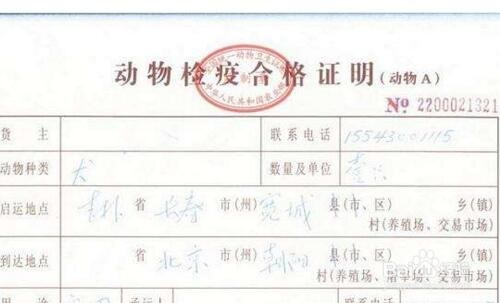 动物检疫合格证明(动物A)
№ 2200021321
货 主 联系电话 15543001115
动物种类 犬 数量及单位
启运地点 吉林 省 长春 市(州) 宽城 县(市、区) 乡(镇)
村(养殖场、交易市场)
到达地点 省 北京 市(州) 朝阳 县(市、区) 乡(镇)
村(养殖场、屠宰场、交易市场)